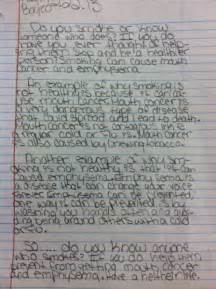 Do you smoke or know
someone who does? If you do
have you ever thought of help-
ing them stop and be a healthier
person? Smoking can cause mouth
cancer and emphysema.
An example of why smoking is
not healthy is because it can ca-
use mouth cancer. Mouth cancer is
a very dangerous type of disease
that could spread and lead to death.
Mouth cancer is not contagious like
a regular cold or Mouth cancer
is also caused by chewing tobacco.
Another example of why smo-
king is not healthy is that it can
cause emphysema. Emphysema is
a disease that can change your voice
forever. Emphysema can be prevented.
One way it can be prevented is by
washing your hands often and not
being around others with a cold
So ..... do you know anyone
who smokes? If you do help them
prevent from getting mouth cancer
and emphysema. Have a healthier life.